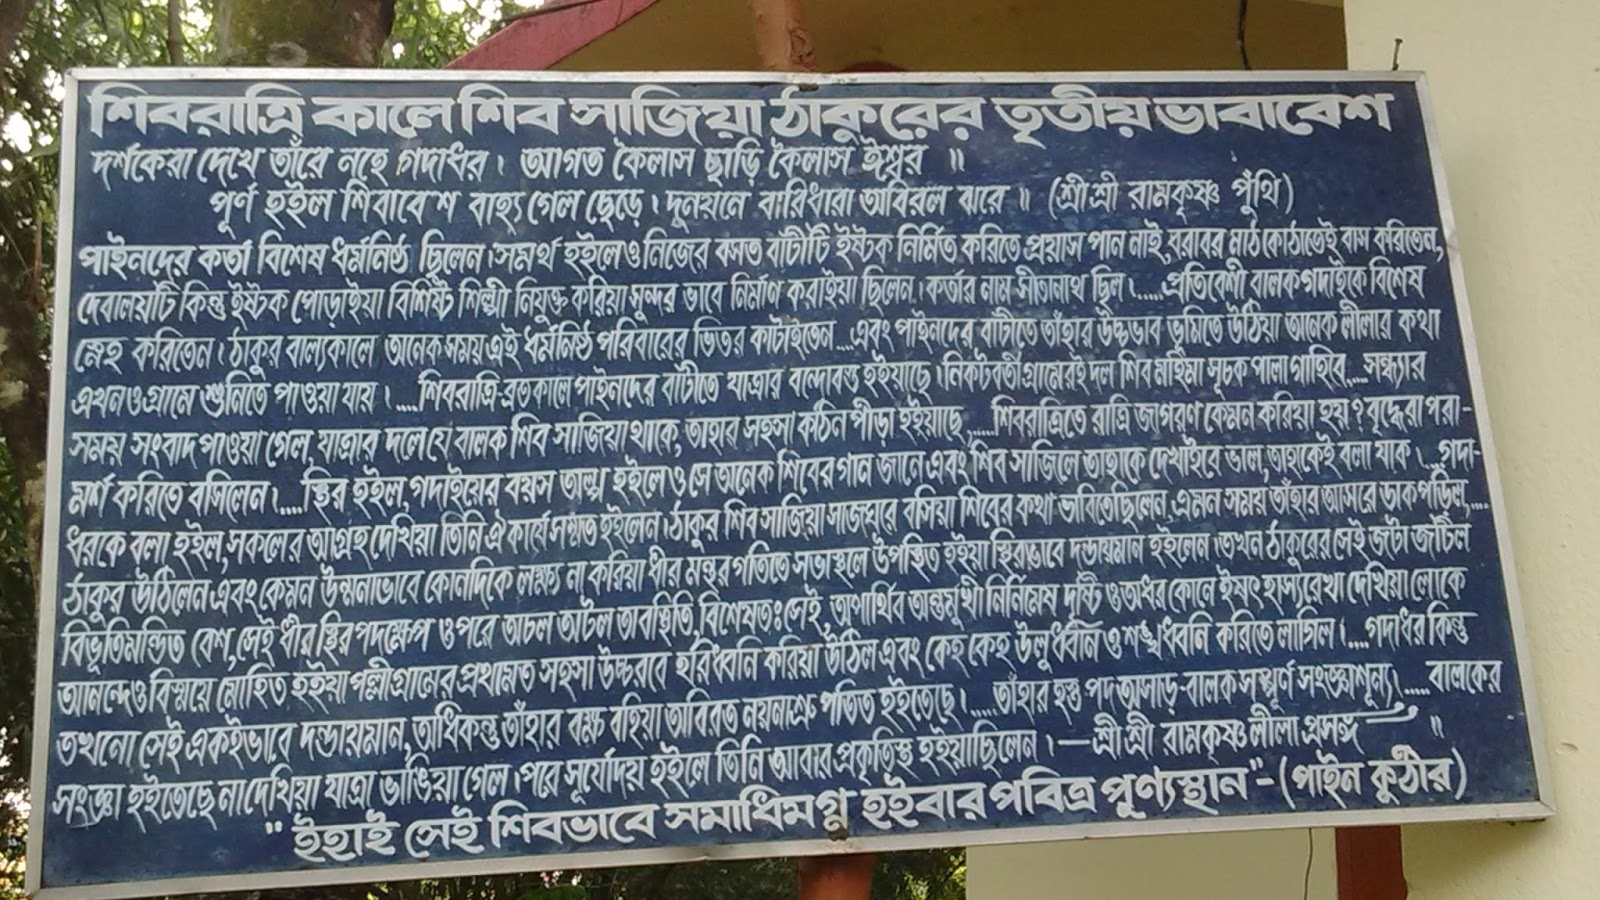 শিবরাত্রি কালে শিব সাজিয়া ঠাকুরের তৃতীয় ভাবাবেশ
দর্শকেরা দেখে তাঁরে নহে গদাধর। আগত কৈলাস ছাড়ি কৈলাস ঈশ্বর ॥
পূর্ণ হইল শিবাবেশ বাহ্য গেল ছেড়ে। দুনয়নে বারিধারা অবিরল ঝরে ॥ (শ্রীশ্রী রামকৃষ্ণ পুঁথি)
পাইনদের কর্তা বিশেষ ধর্মনিষ্ঠ ছিলেন। সমর্থ হইলেও নিজের বসত বাটীটি ইষ্টক নির্মিত করিতে প্রয়াস পান নাই, বরাবর মাঠ কোঠাতেই বাস করিতেন,
দেবালয়টি কিন্তু ইষ্টক পোড়াইয়া বিশিষ্ট শিল্পী নিযুক্ত করিয়া সুন্দর ভাবে নির্মাণ করাইয়া ছিলেন। কর্তার নাম সীতানাথ ছিল।.....প্রতিবেশী বালক গদাইকে বিশেষ
স্নেহ করিতেন। ঠাকুর বাল্যকালে অনেক সময় এই ধর্মনিষ্ঠ পরিবারের ভিতর কাটাইতেন....এবং পাইনদের বাটীতে তাঁহার উচ্চভাব ভূমিতে উঠিয়া অনেক লীলার কথা
এখনও গ্রামে শুনিতে পাওয়া যায়।....শিবরাত্রি-ব্রতকালে পাইনদের বাটীতে যাত্রার বন্দোবস্ত হইয়াছে। নিকটবর্তী গ্রামেরই দল শিব মহিমা সূচক পালা গাহিবে....সন্ধ্যার
সময় সংবাদ পাওয়া গেল, যাত্রার দলে যে বালক শিব সাজিয়া থাকে, তাহার সহসা কঠিন পীড়া হইয়াছে,.....শিবরাত্রিতে রাত্রি জাগরণ কেমন করিয়া হয়? বৃদ্ধেরা পরা-
মর্শ করিতে বসিলেন।....স্থির হইল, গদাইয়ের বয়স অল্প হইলেও সে অনেক শিবের গান জানে এবং শিব সাজিলে তাহাকে দেখাইবে ভাল, তাহাকেই বলা যাক।...গদা-
ধরকে বলা হইল, সকলের আগ্রহ দেখিয়া তিনি ঐ কার্যে সম্মত হইলেন। ঠাকুর শিব সাজিয়া সাজঘরে বসিয়া শিবের কথা ভাবিতেছিলেন, এমন সময় তাঁহার আসরে ডাক পড়িল,....
ঠাকুর উঠিলেন এবং কেমন উন্মনাভাবে কোনদিকে লক্ষ্য না করিয়া ধীর মন্থর গতিতে সভাস্থলে উপস্থিত হইয়া স্থিরভাবে দন্ডায়মান হইলেন। তখন ঠাকুরের সেই জটা জটিল
বিভূতিমন্ডিত বেশ, সেই ধীর স্থির পদক্ষেপ ও পরে অচল অটল অবস্থিতি, বিশেষতঃ সেই, অপার্থিব অন্তমুখী নির্নিমেষ দৃষ্টি ও অধর কোনে ইষৎ হাস্যরেখা দেখিয়া লোকে
আনন্দে ও বিস্ময়ে মোহিত হইয়া পল্লীগ্রামের প্রথামত সহসা উচ্চরবে হরিধ্বনি করিয়া উঠিল এবং কেহ কেহ উলুধ্বনি ও শঙ্খধ্বনি করিতে লাগিল।....গদাধর কিন্তু
তখনো সেই একইভাবে দন্ডায়মান, অধিকন্তু তাঁহার বক্ষ বহিয়া অবিরত নয়নাশ্রু পতিত হইতেছে।.....তাঁহার হস্ত পদ অসাড়-বালক সম্পূর্ণ সংজ্ঞাশূন্য।.....বালকের
সংজ্ঞা হইতেছে না দেখিয়া যাত্রা ভাঙিয়া গেল। পরে সূর্যোদয় হইলে তিনি আবার প্রকৃতিস্থ হইয়াছিলেন।—শ্রীশ্রী রামকৃষ্ণ লীলা প্রসঙ্গ ॥
"ইহাই সেই শিবভাবে সমাধিমগ্ন হইবার পবিত্র পুণ্যস্থান"-(পাইন কুঠীর)